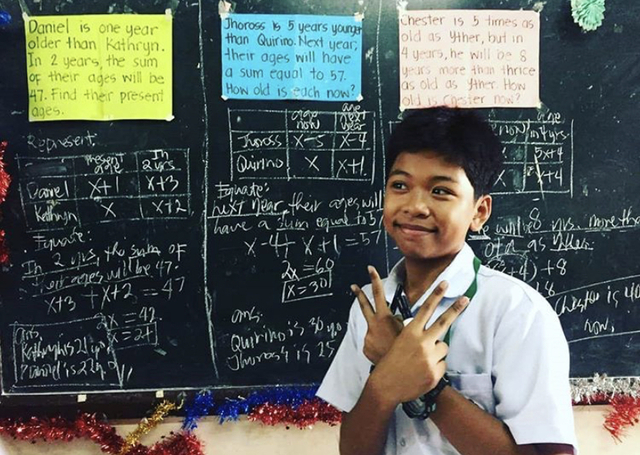 Daniel is one year
older than Kathryn.
In 2 years, the sum
of their ages will be
47. Find their present
ages.
Represent:
present age
In 2 yrs
Daniel x+1 x+3
Kathryn x x+2
Equate:
In 2 yrs, the sum of
their ages will be 47.
x+3 + x+2 = 47
2x = 42
x = 21
ans.
Kathryn is 21
Daniel is 22
Jhoross is 5 years younger
than Quirino. Next year,
their ages will have
a sum equal to 57.
How old is each now?
age now
age next year
Jhoross x-5 x-4
Quirino x x+1
Equate:
Next year, their ages will
have a sum equal to 57
x-4+ x+1 = 57
2x = 60
x = 30
ans.
Quirino is 30 yo
Jhoross is 25
Chester is 5 times as
old as Yther, but in
4 years, he will be 8
years more than thrice
as old as Yther. How
old is Chester now?
age
now in 4 yrs.
5x+4
x+4
will be 8 yrs. more than
old as Yther.
+4) +8
Chester is 40
now.